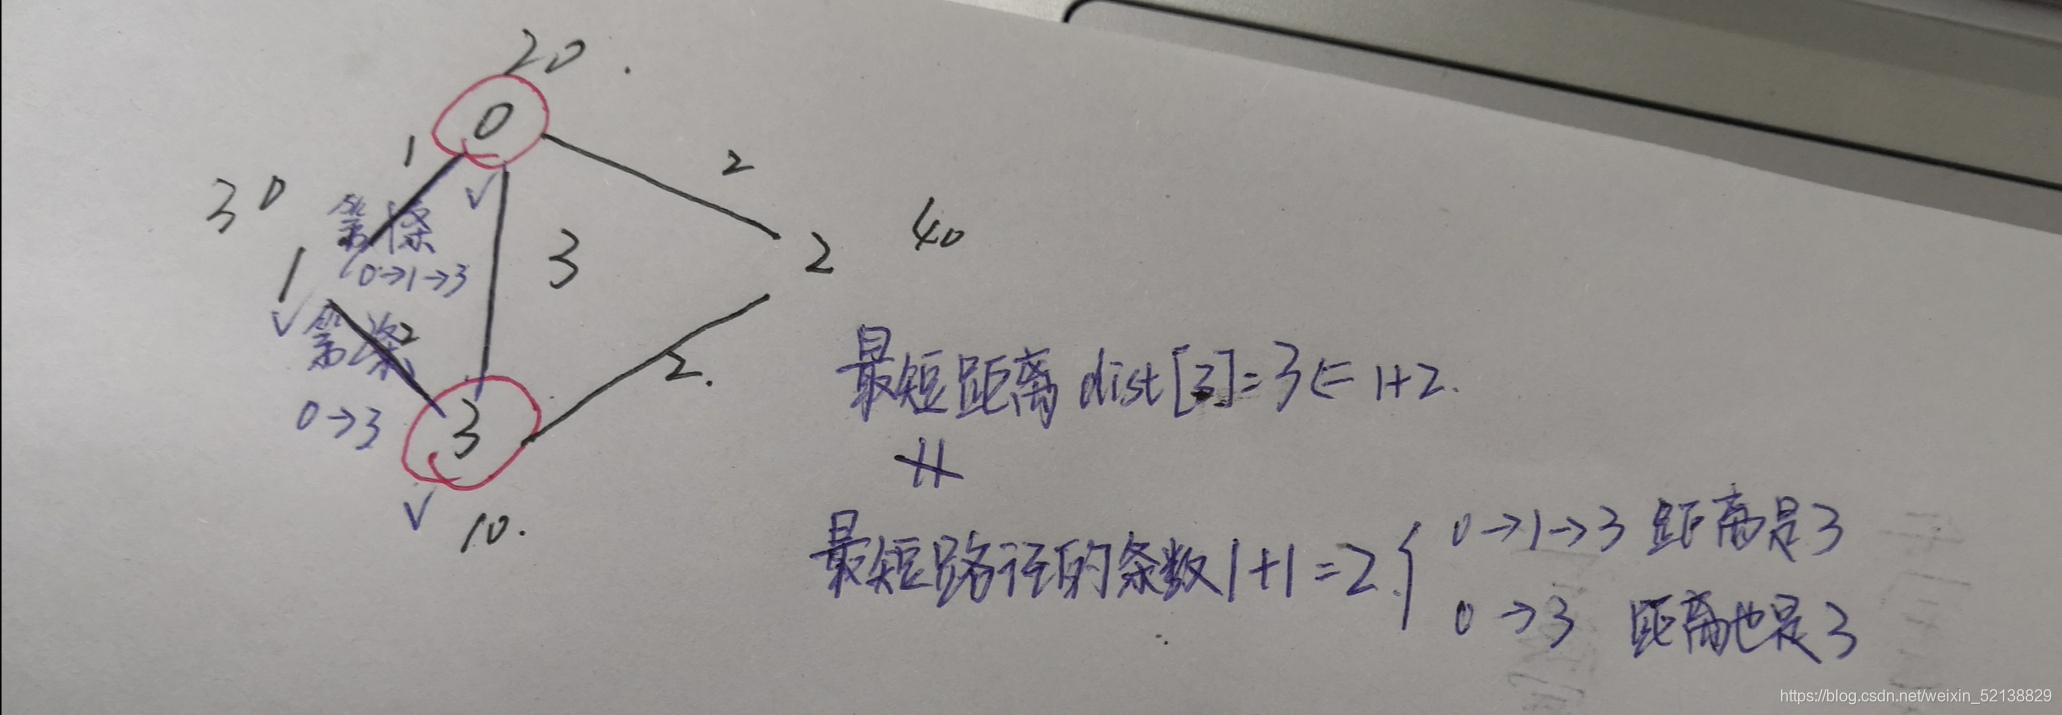 20.
0
1
2
30
第1条
0→1→3
3
1
2
40
第2条
2
0→3
3
2.
10.
最短距离 dist[3]=3 ⇐ 1+2.
最短路径的条数 1+1=2.{
0→1→3 距离是3
0→3 距离也是3
https://blog.csdn.net/weixin_52138829